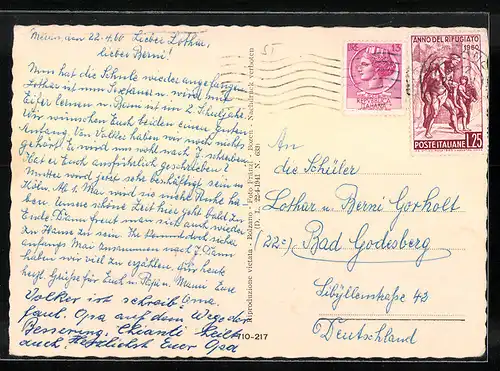 Meran, am 22.4.60 Lieber Lothar,
lieber Berni!
Nun hat die Schule wieder angefangen
Lothar ist nun Sextaner u. wird mit
Eifer lernen u. Berni ist im 2. Schuljahr
Wir wünschen Euch beiden einen guten
Anfang. Von Volker haben wir noch nichts
gehört. Er wird uns wohl nach J. schreiben
Hat er Euch ausführlich geschrieben?
Mutter wird jetzt sehr beschäftigt sein in
Köln. Ab 1. Mai wird sie auch Ruhe ha-
ben. Unsere schöne Zeit hier geht bald zu
Ende. Dann freut man sich auch wieder
zu Hause zu sein. Ihr kommt doch sicher
anfangs Mai zusammen nach J. Dann
haben wir viel zu erzählen. Für heute
herzl. Grüße für Euch u. Papi u. Mami Eure
Volker ist schreib Oma.
faul. Opa auf dem Wege der
Besserung. Chianti heilt
auch. Herzlichst Euer Opa
Riproduzione vietata - Bolzano - Foto Fränzl - Bozen - Nachdruck verboten
(D. L. 22-4-1941 N. 633)
110-217
LIRE 15
REPUBBLICA
ITALIANA
ANNO DEL RIFUGIATO
1960
POSTE ITALIANE L.25
An
die Schüler
Lothar u. Berni Gorholt
(22c) Bad Godesberg
Sibyllenstraße 42
Deutschland